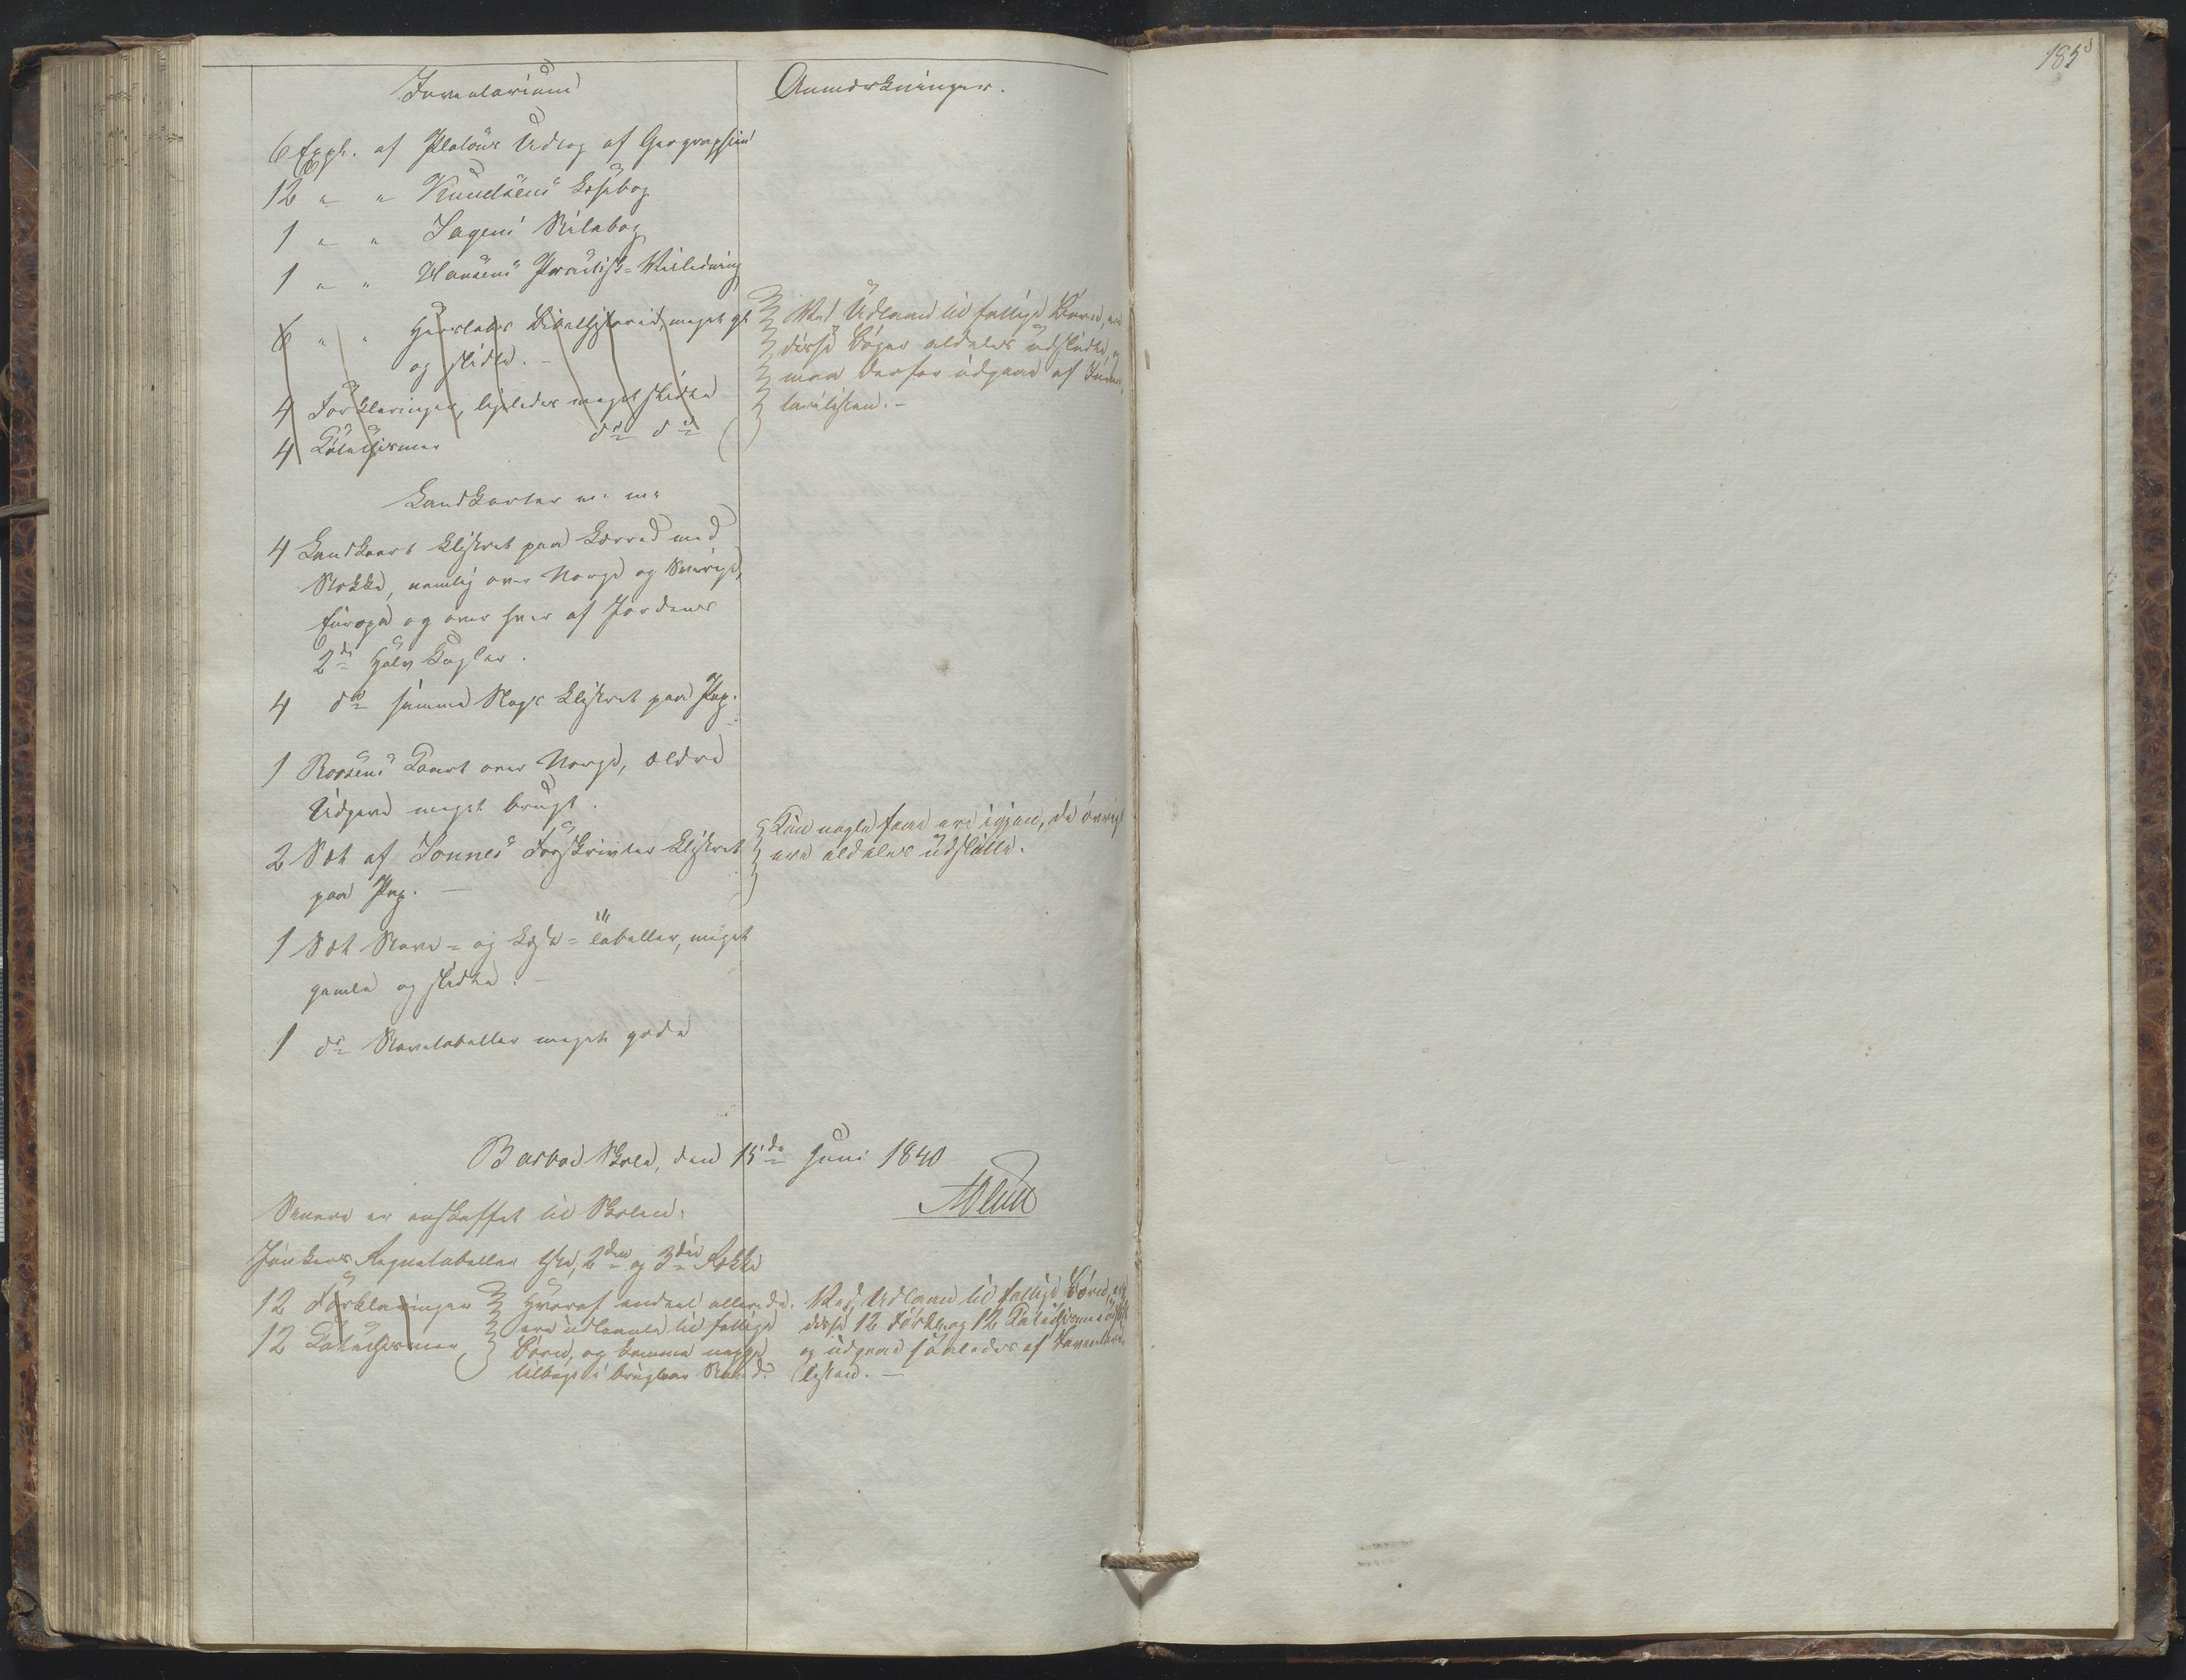 185
Inventarium
Anmærkninger.
6 Expl. af Platous Udtog af Geographien
12 " " Knudsens Læsebog
1 " " Stilebog
1 " " Hansens Practisk-Veiledning
6 " " Herslebs Bibelhistorie, meget gl.
og slidte. -
4 Forklaringer, ligeledes meget slidte
4 Catechismer do do
Ved Udlaan til fattige Børn, ere
disse Bøger aldeles udslidte, og
maa derfor udgaae af Inven-
tarielisten. -
Landkarter m. m.
4 Landkart klistret paa Lærred med
Stokke, nemlig over Norge og Sverige,
Europa og over hver af Jordens
2de Halv Kugler.
4 do samme Slags klistret paa Pap.
1 Roosens Kaart over Norge, ældre
Udgave meget brugt.
2 Sæt af Forskrivter klistret
paa Pap. -
Kun nogle faae ere igjen, de øvrige
ere aldeles udslidte.
1 Sæt Stave- og Læse-tabeller, meget
gamle og slidte. -
1 do Stavetabeller meget gode
Barboe Skole, den 15de Juni 1840
Senere er anskaffet til Skolen:
Junkers Regnetabeller 1ste, 2den og 3die Rekke
12 Forklaringer
12 Catechismer
Hvoraf endeel allerede
ere udlaante til fattige
Børn, og komme neppe
tilbage i brugbar Stand.
Ved Udlaan til fattige Børn, ere
disse 12 Forkl. og 12 Catechismer
og udgaae saaledes af Inventarie
listen. -